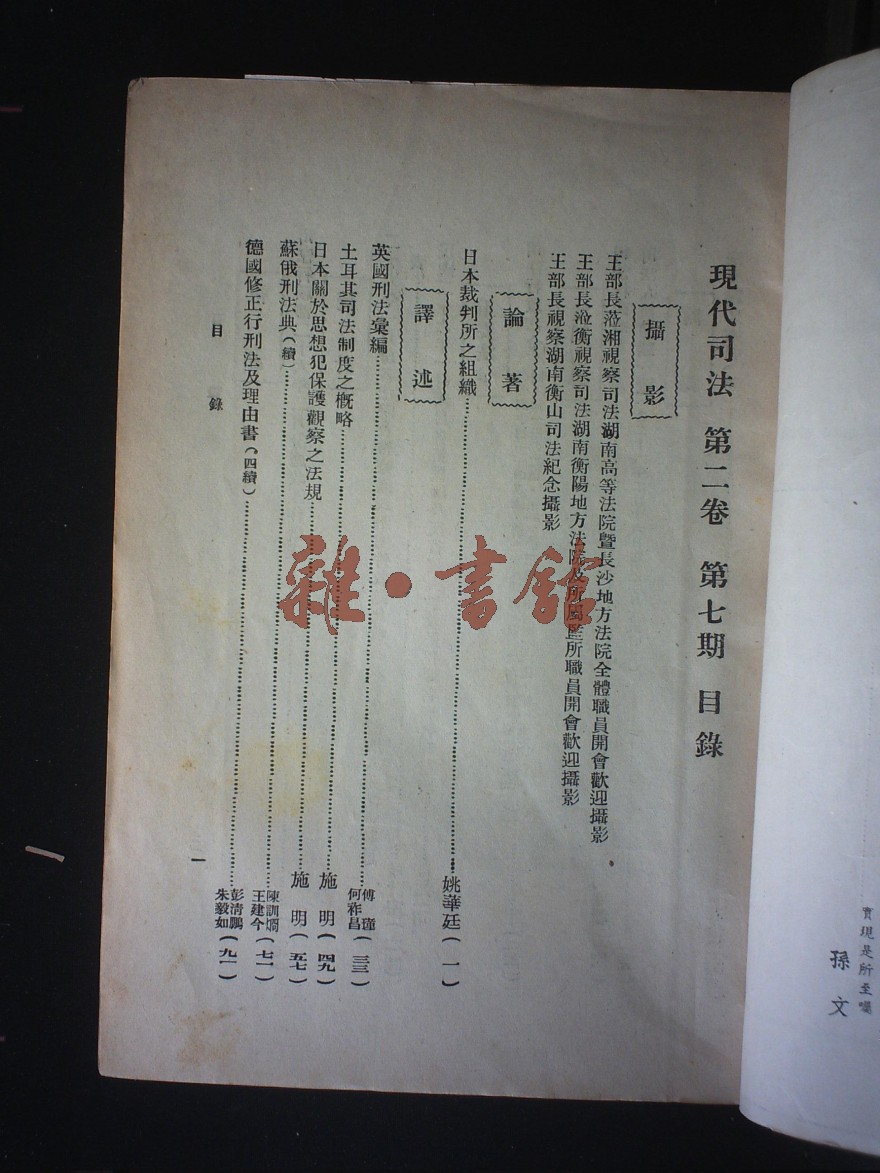 現代司法 第二卷 第七期 目錄
攝影
王部長蒞湘視察司法湖南高等法院暨長沙地方法院全體職員開會歡迎攝影
王部長蒞衡視察司法湖南衡陽地方法院及所屬監所職員開會歡迎攝影
王部長視察湖南衡山司法紀念攝影
論著
日本裁判所之組織 姚華廷(一)
譯述
英國刑法彙編 傅瓊 何祚昌(三三)
土耳其司法制度之概略 施明(四九)
日本關於思想犯保護觀察之法規 施明(五七)
蘇俄刑法典(續) 陳訓烱 王建今(七一)
德國修正行刑法及理由書(四續) 彭清鵬 朱毅如(九一)
目錄
一
實現是所至囑
孫文
雜·書館